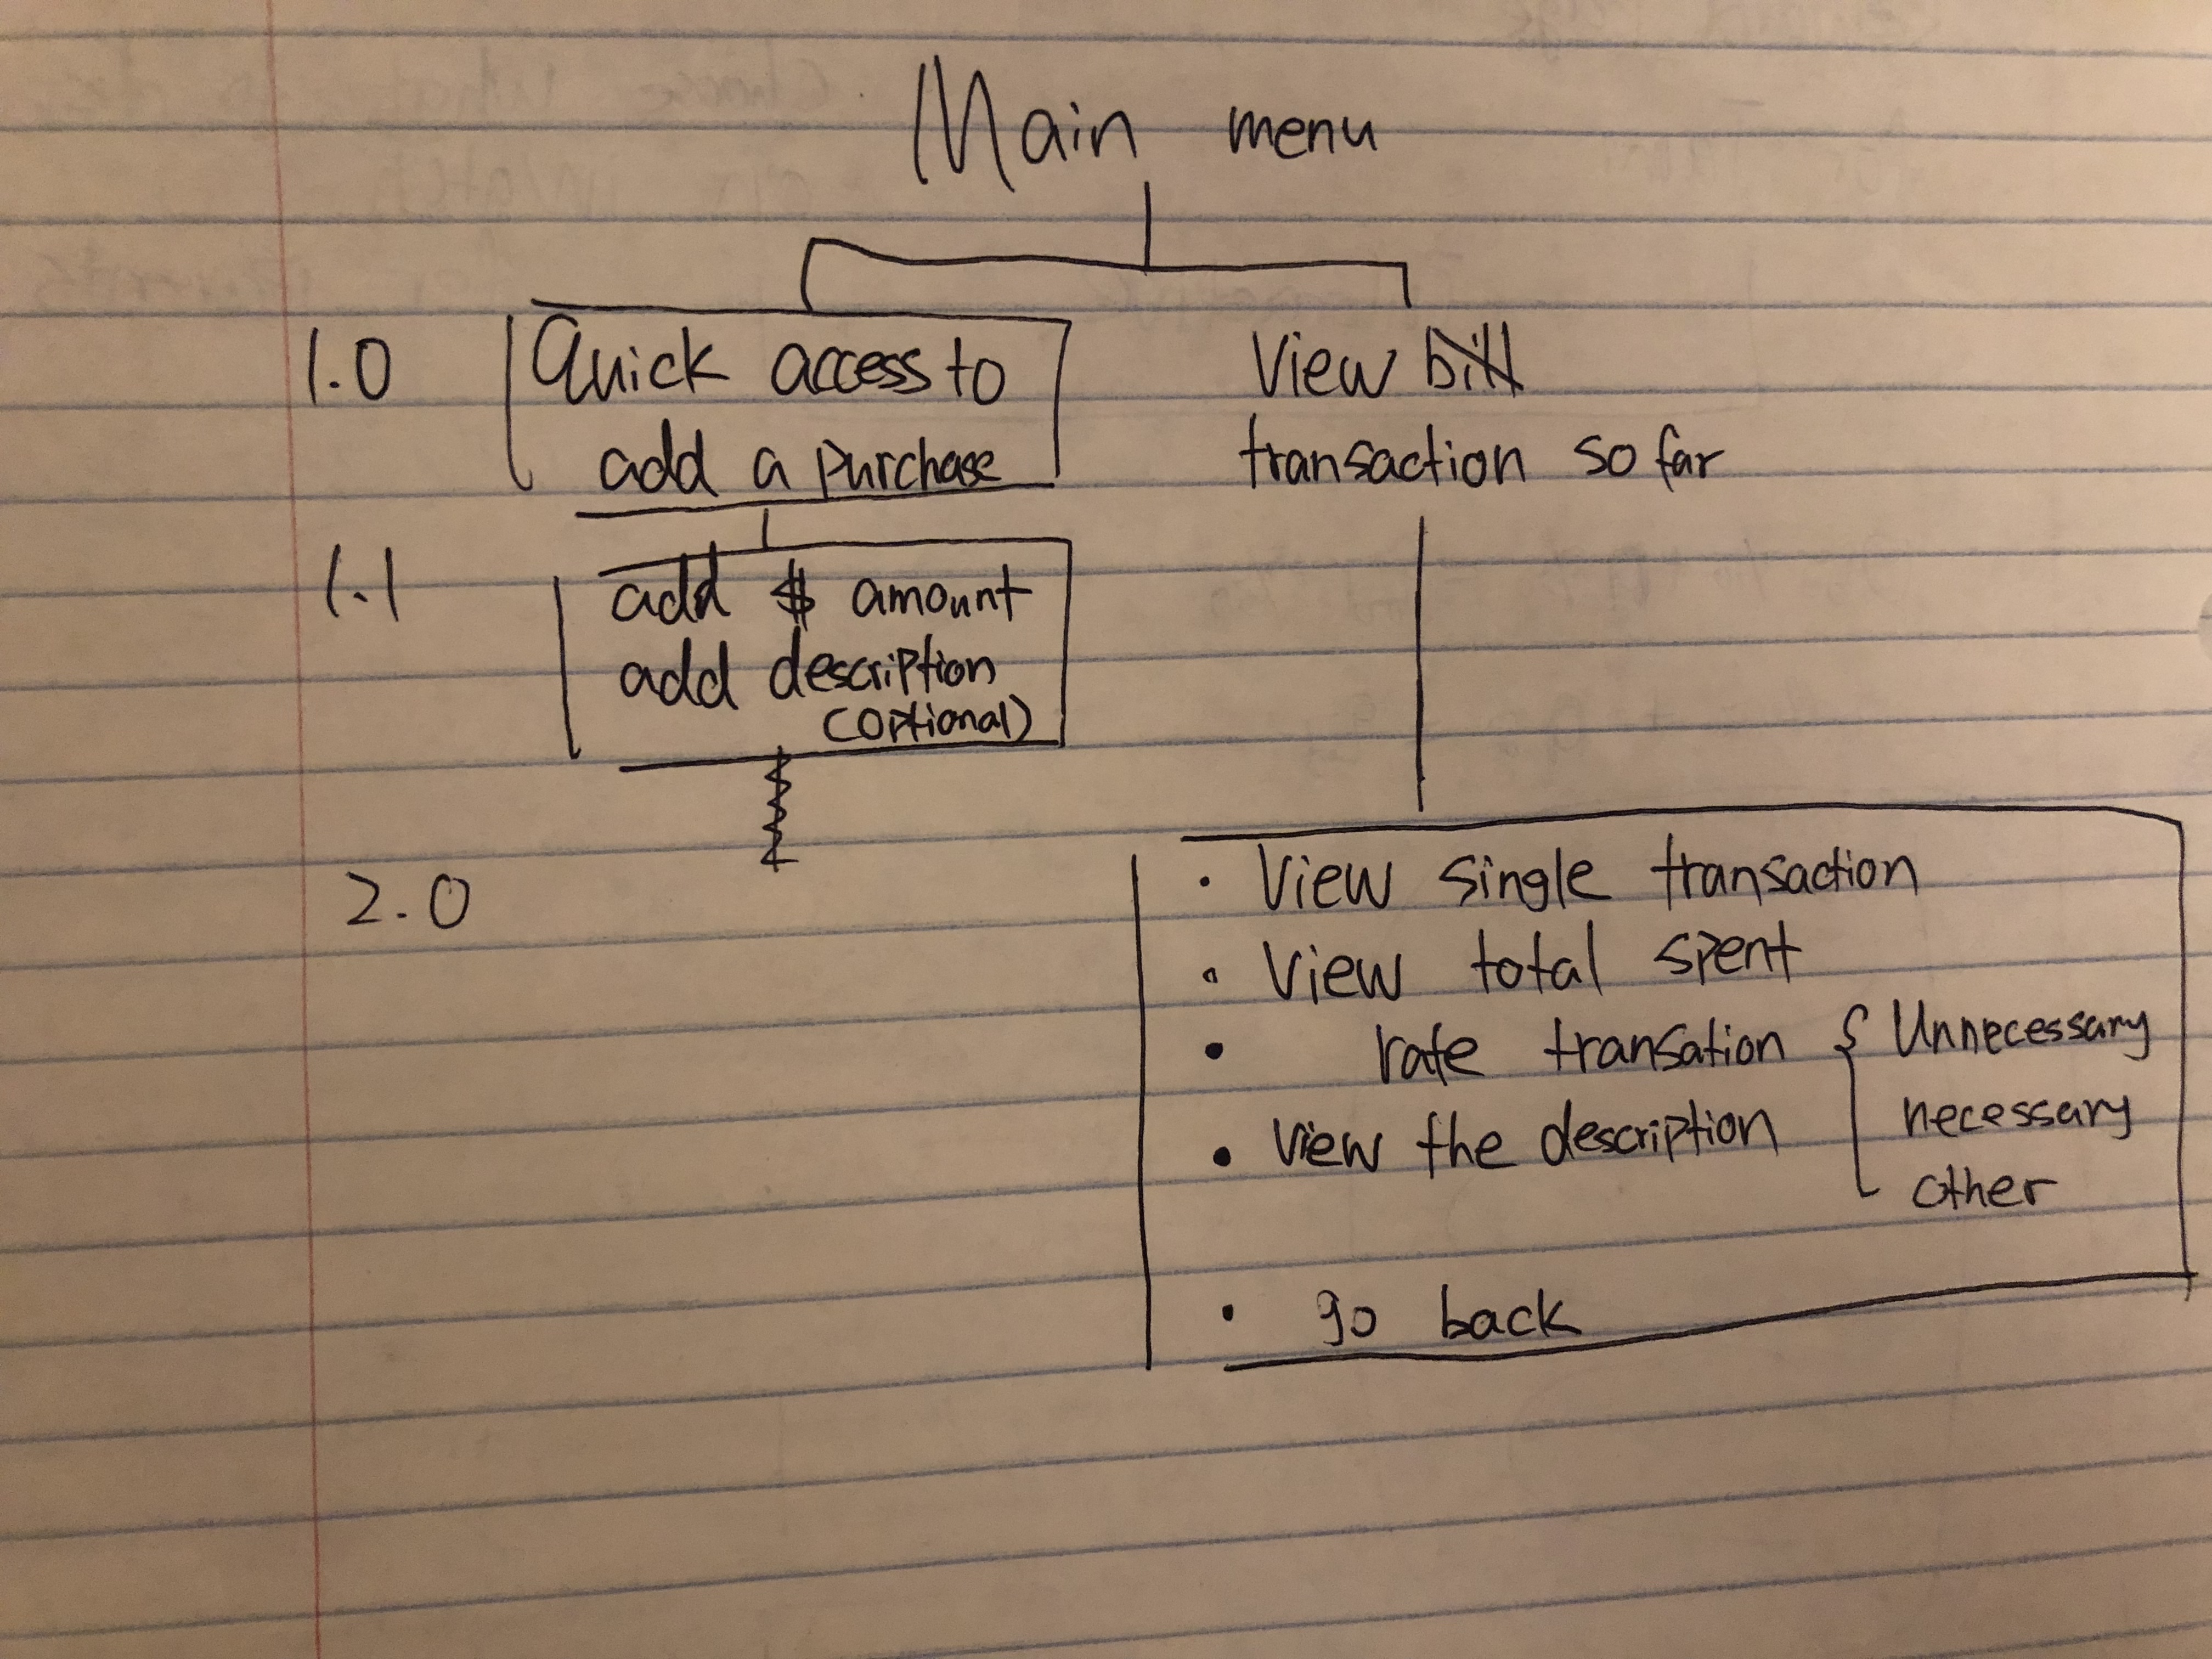 Main menu
1.0 Quick access to
add a purchase
View bill
transaction so far
1.1 add $ amount
add description
(optional)
2.0
• View single transaction
• View total spent
• rate transation { Unnecessary
necessary
other
• View the description
• go back